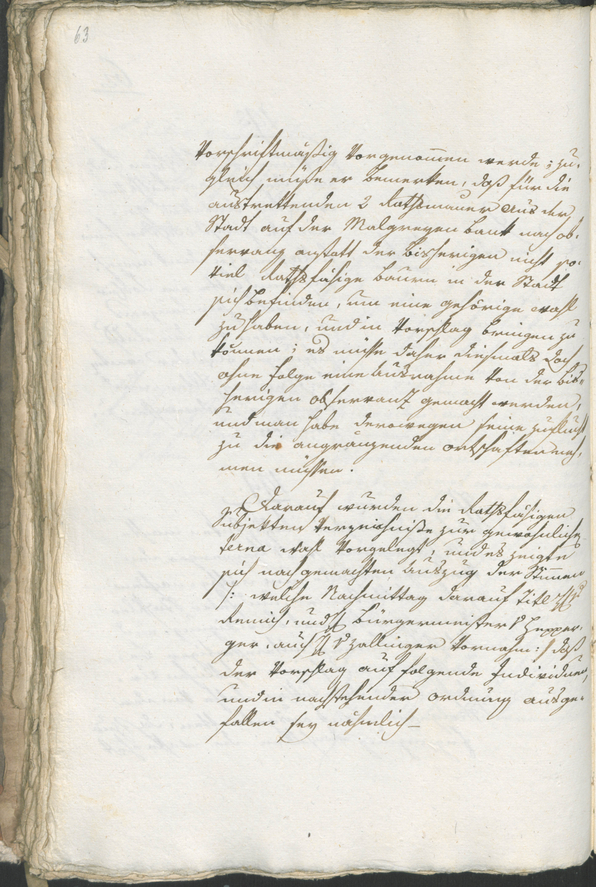 63
Vorschriftmäßig Vorgenommen werde; zu-
gleich müße er bemerken, daß für die
austrettenden 2 Rathsmänner aus der
Stadt auf der Malgreyen bank nach ob-
servanz anstatt der bisherigen nicht so-
viel Rathsfähige baurn in der Stadt
sich befinden, um eine gehörige wahl
zu haben, und in Vorschlag bringen zu
können; es müße daher diesmals doch
ohne folge eine Ausnahme von der bis-
herigen observanz gemacht werden,
und man habe deßwegen seine zuflucht
zu die angränzenden ortschaften neh-
men müssen.
Darauf wurden die Rathsfähigen
Subjekten Verzeichniße zur gewöhnlichen
terna wahl Vorgelegt, und es zeigte
sich nach gemachten Auszug der Stimmen
/: welche Nachmittag darauf Titl H
und H bürgermeister v Hepper-
ger, auch H v Zallinger Vornahm :/ daß
der Vorschlag auf folgende Individuen,
und in nachstehender ordnung ausge-
fallen sey nähmlich